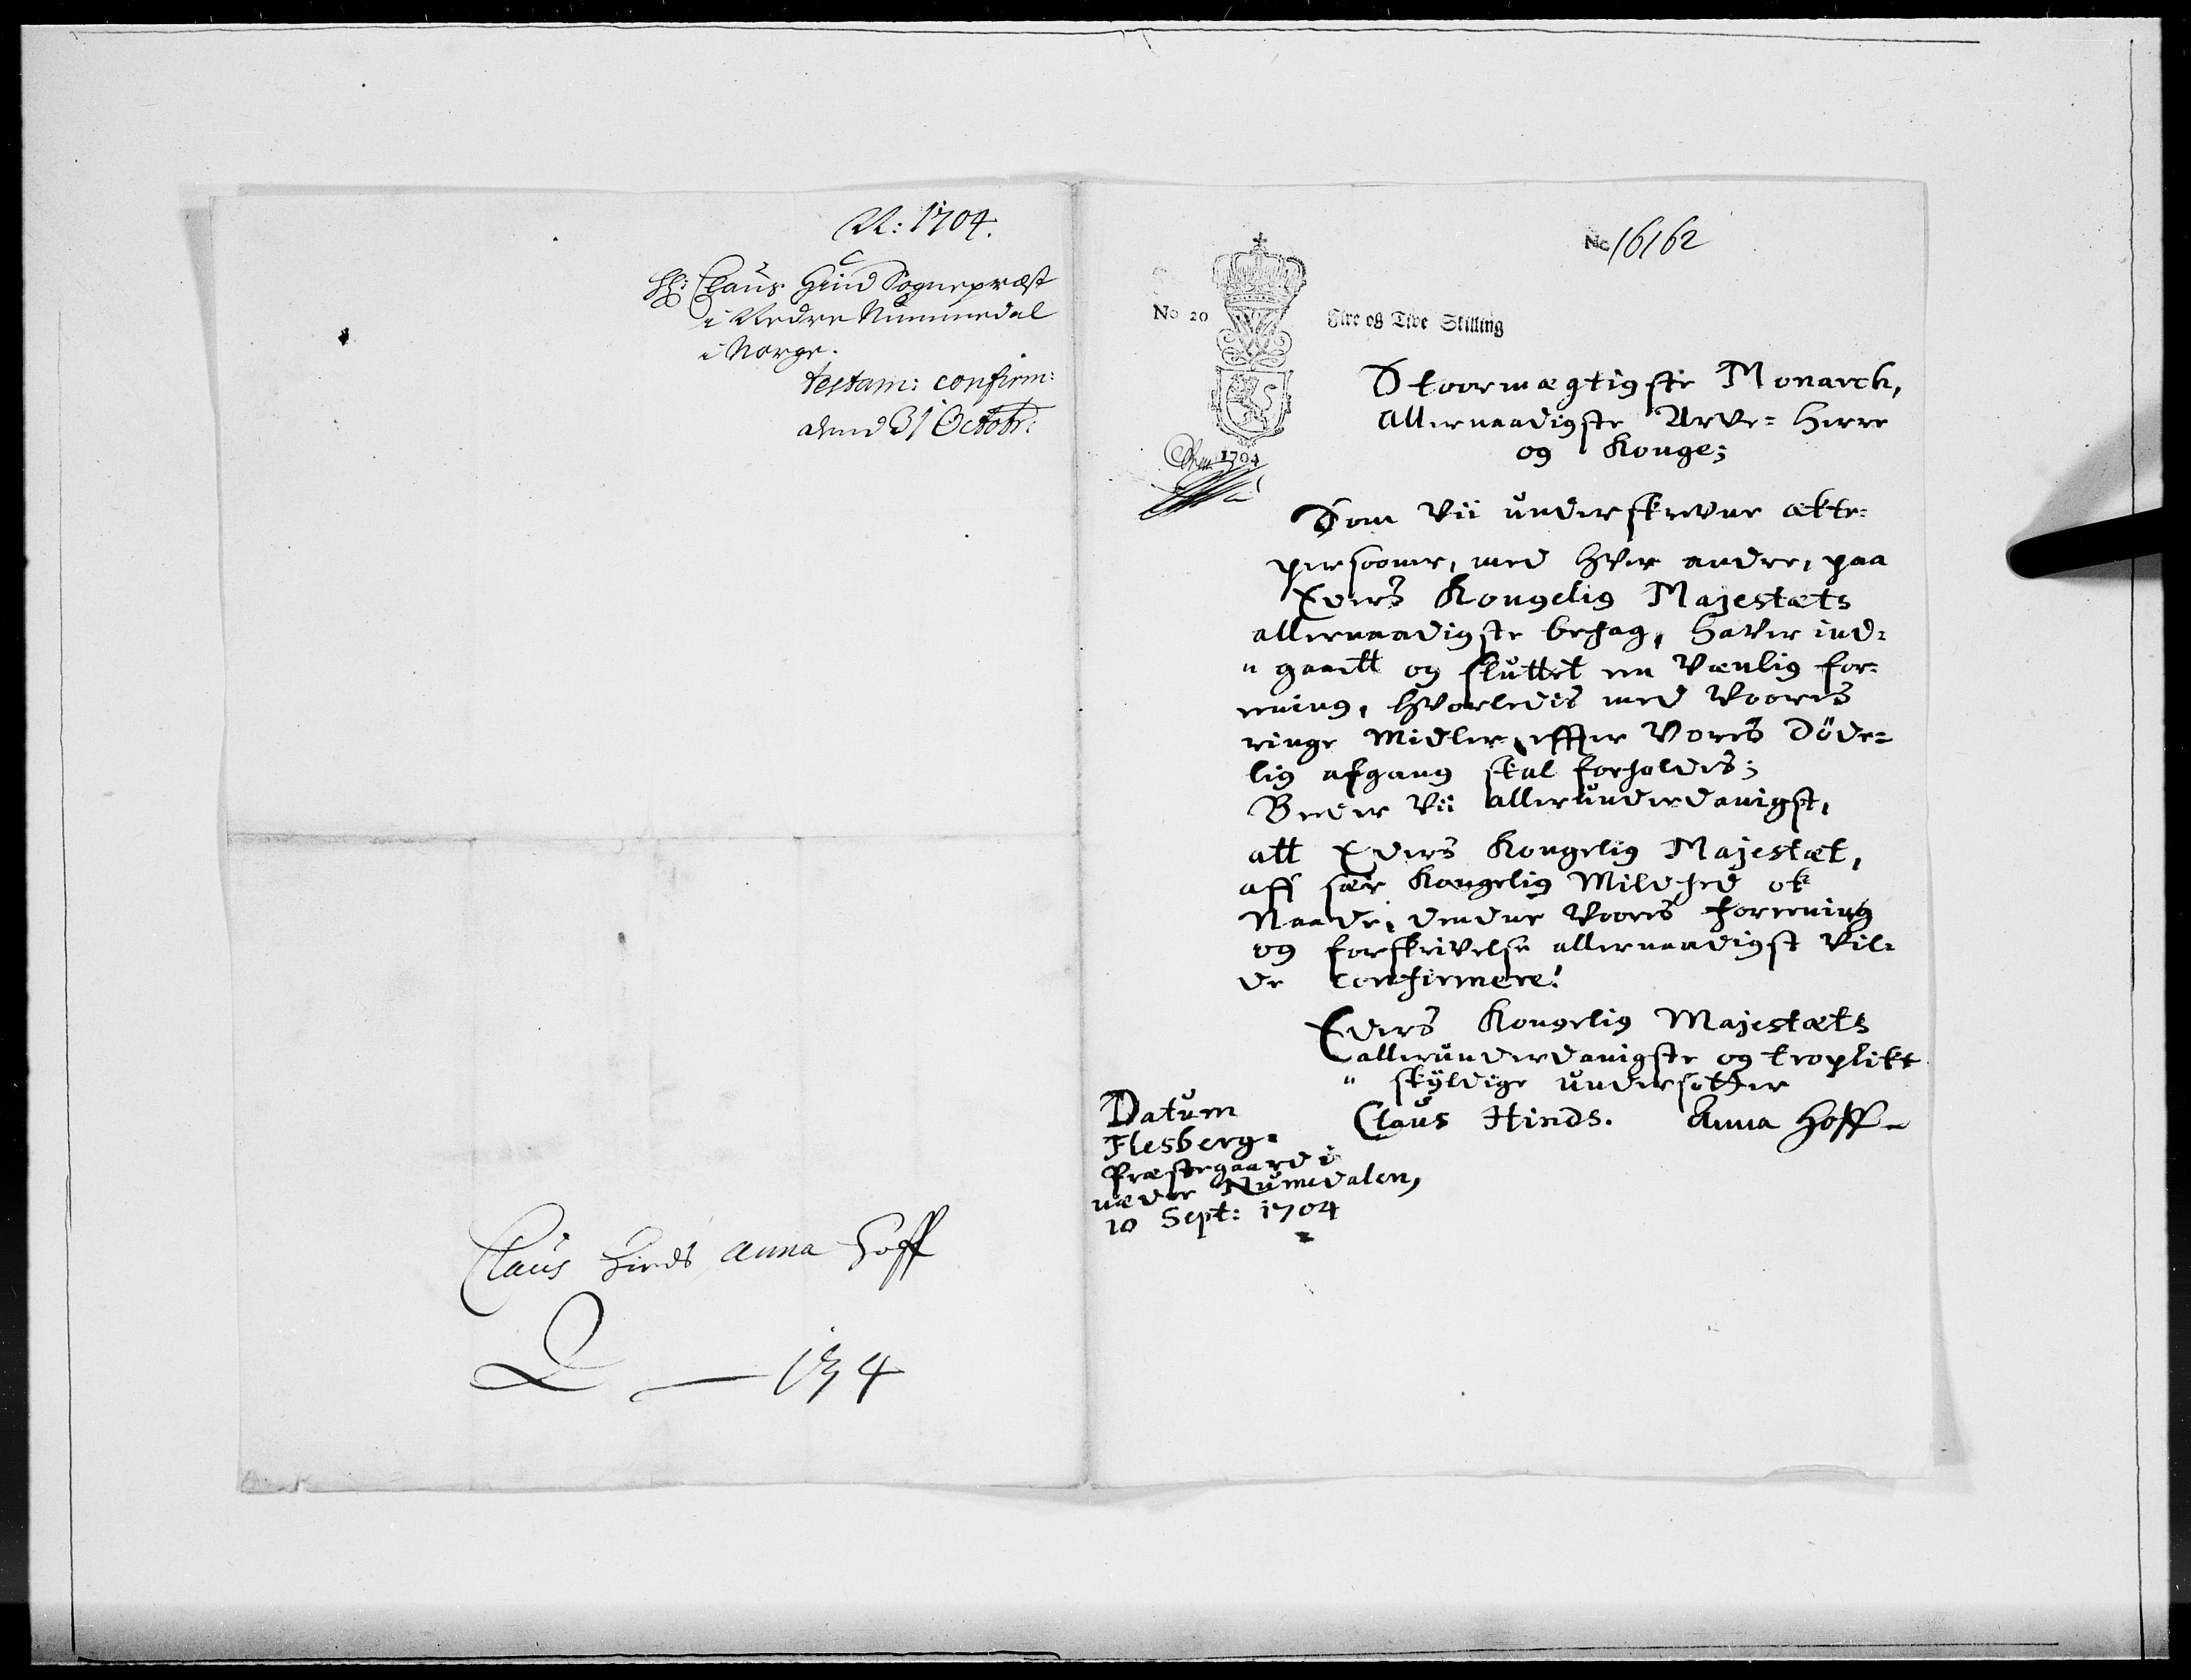 A: 1704.
Hr: Claus Hind Sognepræst
i Nedre Nummedal
i Norge.
testam: confirm:
dend 31 Octobr:
Claus Hinds Anna Hoff
134
No 16162
No 20
Fire og Tive Skilling
1704
Stoormægtigste Monarch,
Allernaadigste Arve= Herre
og Konge;
Som Vii underskrevne ækte=
persooner, med hver andre, paa
Eders Kongelig Majestæts
allernaadigste behag, haver ind=
" gaaett og sluttet en Vænlig for=
eening, hvorledis med Voores
ringe Midler, effter Vores Döde=
lig afgang skal forholdis;
Beder Vii allerunderdanigst,
att Eders Kongelig Majestæt,
aff sær Kongelig Mildhed ok
Naade, dendne Voores foreening
og forskrivelse allernaadigst Vil=
de confirmere!
Eders Kongelig Majestæts
allerunderdanigste og troplikt
" skyldige undersotter
Claus Hinds. Anna Hoff
Datum
Flesberg=
Præstegaard i
nædre Numedalen,
10 Sept: 1704